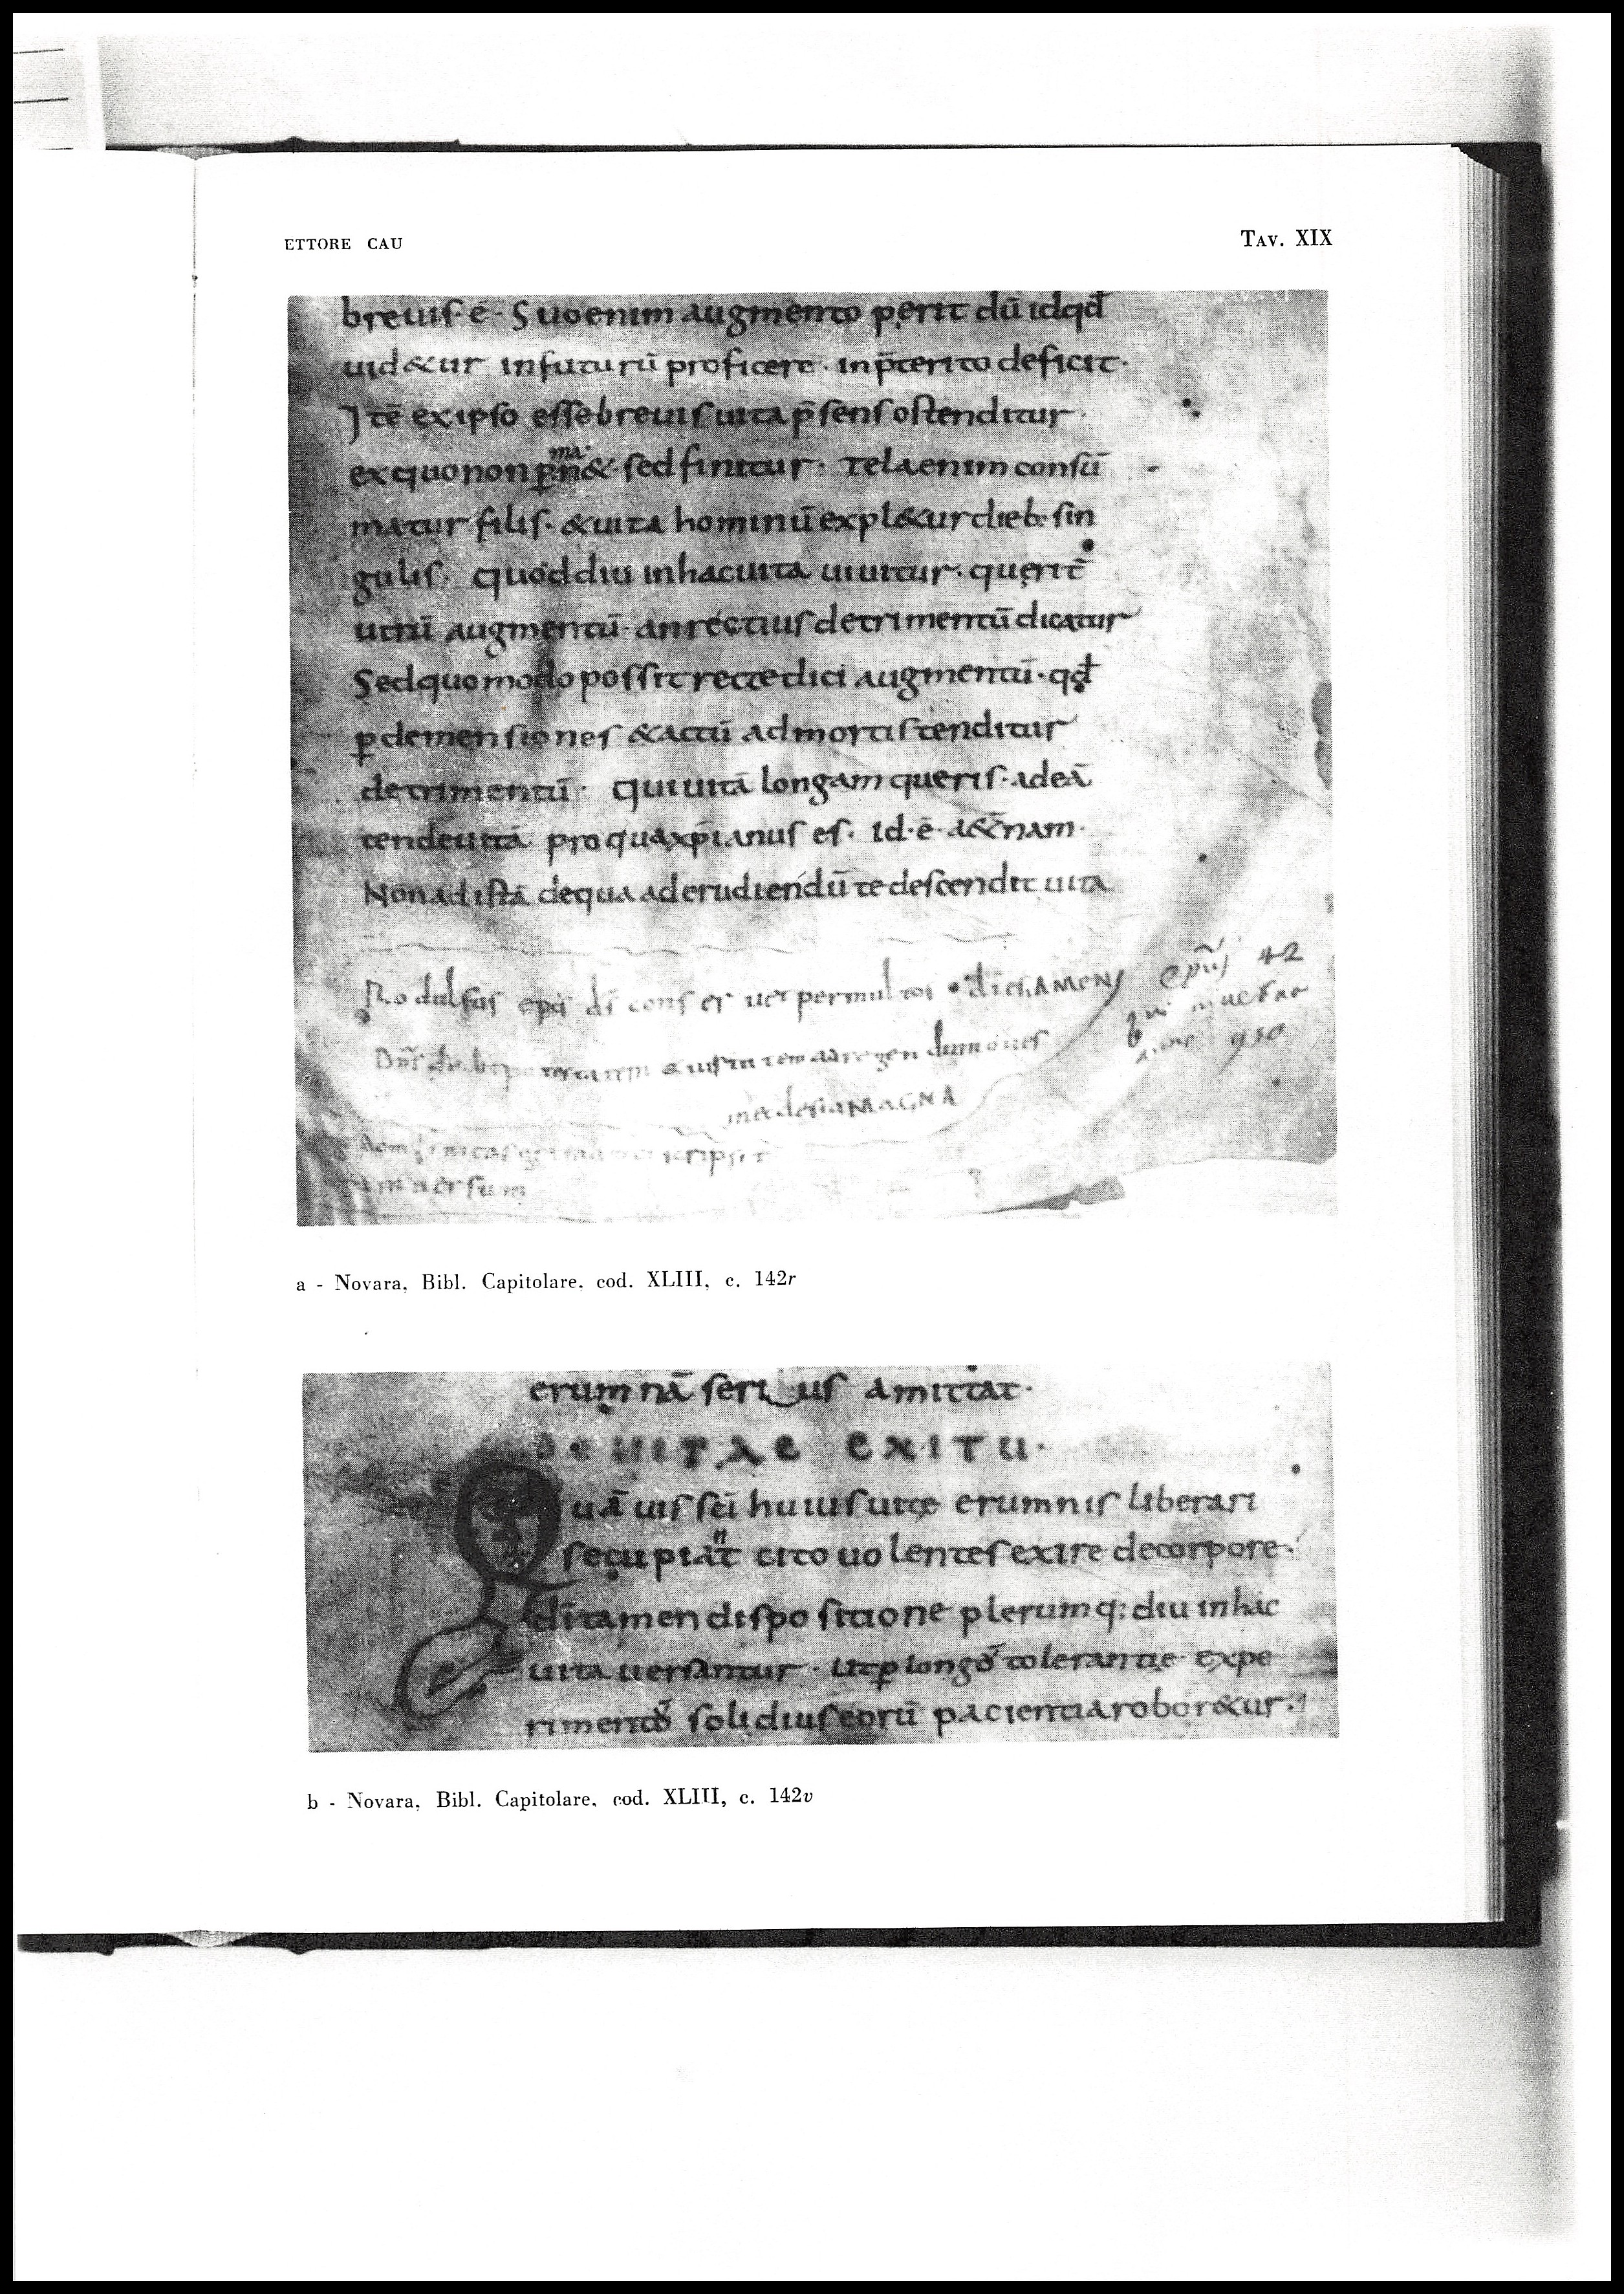 ETTORE CAU
TAV. XIX
breuis·ē· Suoenim augmento perit dū idqđ
uid&ur infuturū proficere· inp̄terito deficit·
Itē exipso esse breuis uita p̄sens ostenditur
exquonon ꝑn̄& sed finitur· Tela enim consū
ma
matur filis· &uita hominū expl&ur dieb· sin
gulis· quoddiu inhacuita uiuitur· querit̄
utrū augmentū· anrectius detrimentū dicatur
Sedquomodo possit recte dici augmentū· qđ
ꝑ demensiones &actū ad mortis tenditur
detrimentū· Qui uitā longam queris· adeā
tende uitā pro qua xp̄ianus es· id·ē· a&̄nam·
Non ad istā de qua ad erudiendū te descendit uita
Rodulfus ep̄s dī cons er uet per multos dies AMEN
ep̄us 42
MAGNA
scripsit
uersum
a - Novara, Bibl. Capitolare, cod. XLIII, c. 142r
erumnā seri us amittat·
DE UITAE EXITU·
Quā uis sc̄i huius uitę erumnis liberari
se cupiat̄ cito uolentes exire decorpore·
n
dī tamen dispositione plerumq; diu in hac
uita uersantur· ut ꝑ longā tolerantię expe
rimentā solidius eorū pacientia robor&ur·
b - Novara, Bibl. Capitolare, cod. XLIII, c. 142v